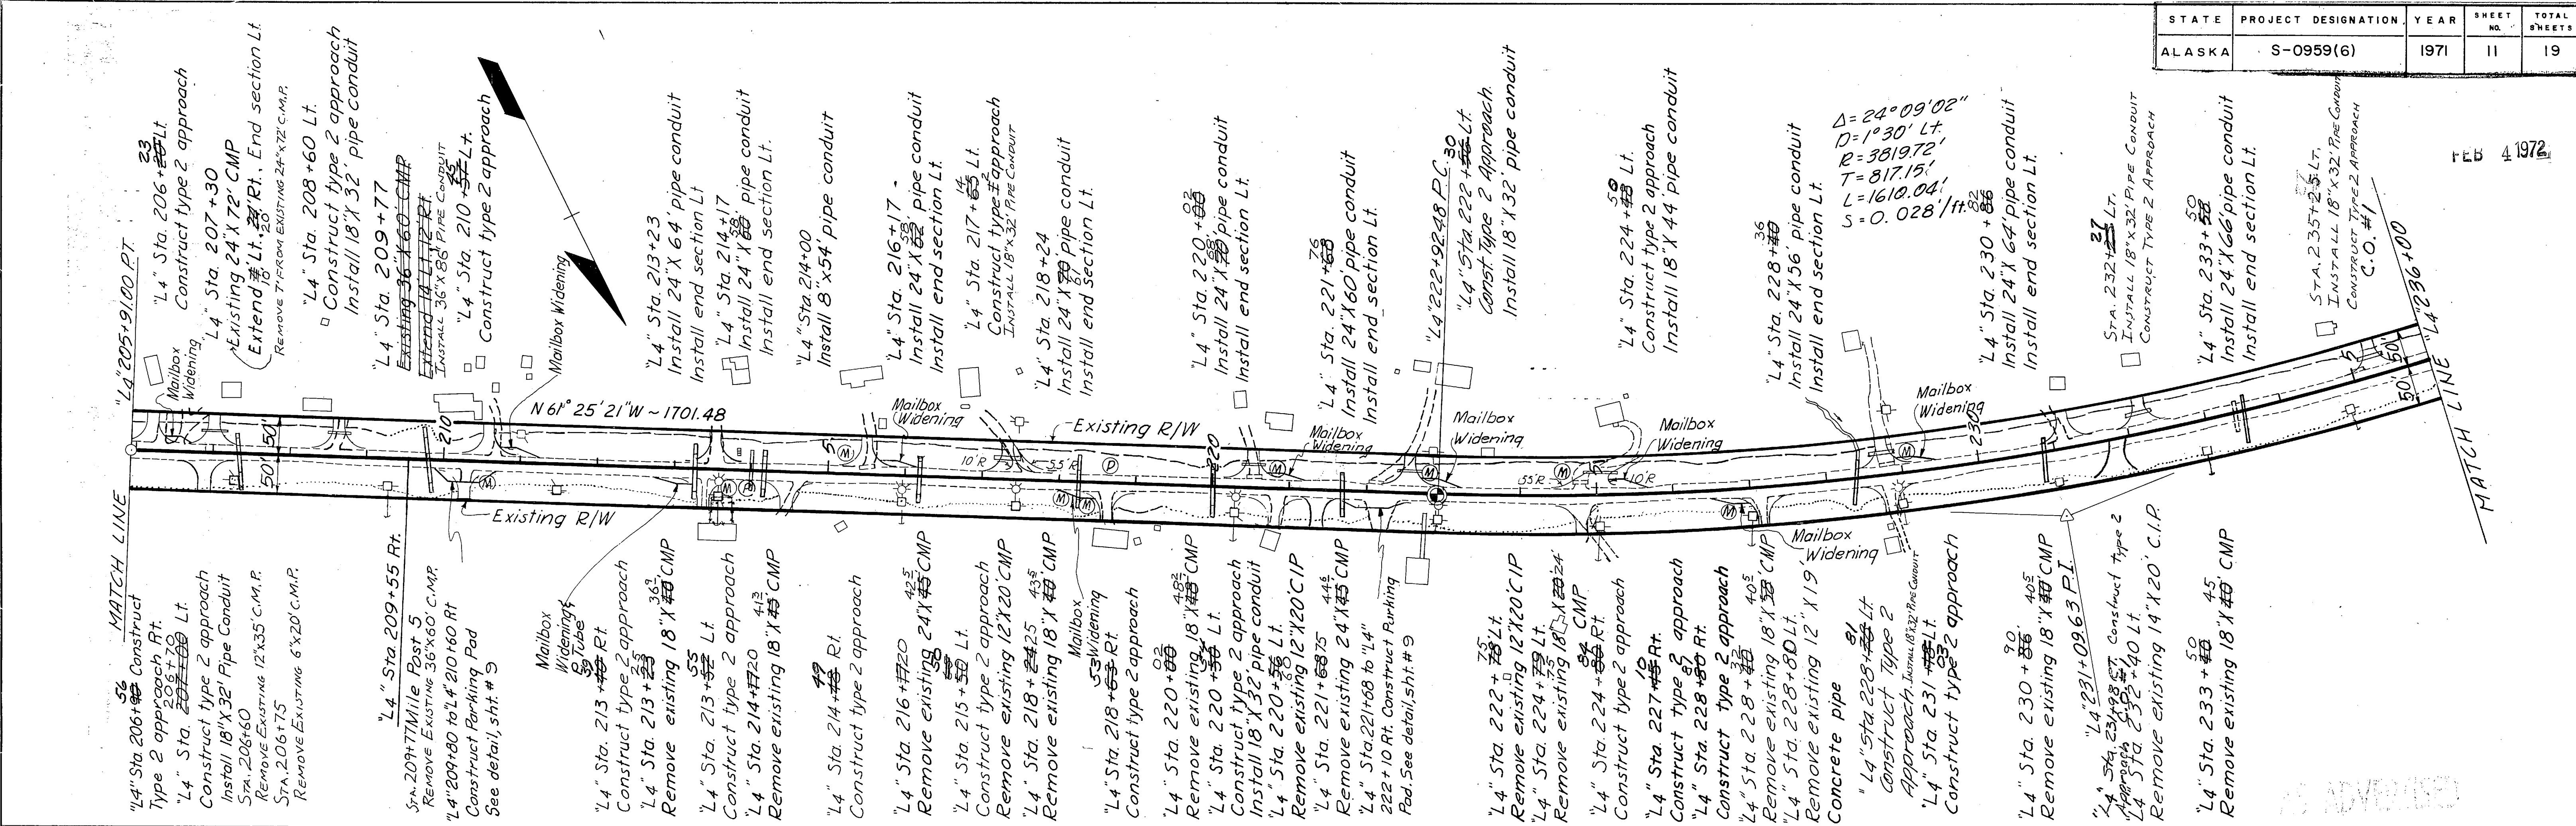 STATE PROJECT DESIGNATION YEAR SHEET NO. TOTAL SHEETS
ALASKA S-0959(6) 1971 11 19
FEB 4 1972
"L4" 205+91.00 P.T.
23
"L4" Sta. 206+20 Lt.
Construct type 2 approach
"L4" Sta. 207+30
Existing 24"X 72' CMP
Lt. 24' Rt., End section Lt
10' 20'
REMOVE 7' FROM EXISTING 24"x72' C.M.P.
"L4" Sta. 208+60 Lt.
Construct type 2 approach
Install 18"X 32' pipe conduit
"L4" Sta. 209+77
Existing 36"X 60' CMP
Extend 14' Lt., 12' Rt.
INSTALL 36"x86' PIPE CONDUIT
45
"L4" Sta. 210+57 Lt.
Construct type 2 approach
Mailbox Widening
"L4" Sta. 213+23
Install 24"X 64' pipe conduit
Install end section Lt
"L4" Sta. 214+17
58'
Install 24"X 60' pipe conduit
Install end section Lt.
"L4" Sta. 214+00
Install 8"x54' pipe conduit
"L4" Sta. 216+17
58'
Install 24"X 62' pipe conduit
Install end section Lt.
14
"L4" Sta. 217+63 Lt.
Construct type 2 approach
INSTALL 18"x32' PIPE CONDUIT
"L4" Sta. 218+24
Install 24"X 70' pipe conduit
61
Install end section Lt.
02
"L4" Sta. 220+00
68'
Install 24"X 70' pipe conduit
Install end section Lt.
76
"L4" Sta. 221+68
Install 24"X60' pipe conduit
Install end section Lt.
"L4" 222+92.48 P.C.
30
"L4" Sta. 222+56 Lt.
Const. Type 2 Approach.
Install 18"X 32' pipe conduit
50
"L4" Sta. 224+48 Lt.
Construct type 2 approach
Install 18"X 44' pipe conduit
36
"L4" Sta. 228+40
Install 24"X56' pipe conduit
Install end section Lt.
Δ=24°09'02"
D=1°30' Lt.
R=3819.72'
T=817.15'
L=1610.04'
S=0.028'/ft.
82
"L4" Sta. 230+86
Install 24"X 64' pipe conduit
Install end section Lt.
27
STA. 232+25 LT.
INSTALL 18"x32' PIPE CONDUIT
CONSTRUCT TYPE 2 APPROACH
50
"L4" Sta. 233+58
Install 24"X66' pipe conduit
Install end section Lt.
STA. 235+25 LT.
INSTALL 18"x32' PIPE CONDUIT
CONSTRUCT TYPE 2 APPROACH
C.O. #1
"L4" 236+00
MATCH LINE
Mailbox Widening
N 61° 25' 21" W ~ 1701.48
Mailbox Widening
Existing R/W
Mailbox Widening
Mailbox Widening
Mailbox Widening
Mailbox Widening
50' 50'
210
5
10'R
55'R
220
55'R
5
10'R
230
5
50'
50'
M M P M P M M M M M M M
Existing R/W
Mailbox Widening
MATCH LINE
56
"L4" Sta. 206+90 Construct
Type 2 approach Rt.
206+70
"L4" Sta. 207+00 Lt.
Construct type 2 approach
Install 18"X32' Pipe Conduit
STA. 206+60
REMOVE EXISTING 12"x35' C.M.P.
STA. 206+75
REMOVE EXISTING 6"x20' C.M.P.
"L4" Sta. 209+55 Rt.
Mile Post 5
STA. 209+77
REMOVE EXISTING 36"x60' C.M.P.
"L4" 209+80 to "L4" 210+60 Rt
Construct Parking Pad
See detail, sht. # 9
Mailbox
Widenings
P. Tube
39
"L4" Sta. 213+40 Rt.
Construct type 2 approach
25
"L4" Sta. 213+23
36.9
Remove existing 18"X 40' CMP
55
"L4" Sta. 213+52 Lt
Construct type 2 approach
"L4" Sta. 214+17 20
41.3
Remove existing 18"X 45' CMP
49
"L4" Sta. 214+48 Rt.
Construct type 2 approach
"L4" Sta. 216+17 20
42.5
Remove existing 24"X 45' CMP
"L4" Sta. 215+50 Lt.
Construct type 2 approach
Remove existing 12"X20' CMP
"L4" Sta. 218+24 25
43.5
Remove existing 18"X 40' CMP
Mailbox
Widening
53
"L4" Sta. 218+63 Rt.
Construct type 2 approach
02
"L4" Sta. 220+00
48.2
Remove existing 18"X48' CMP
"L4" Sta. 220+30 Lt.
Construct type 2 approach
Install 18"X32' pipe conduit
"L4" Sta. 220+56 Lt.
60
Remove existing 12"X20' CIP
"L4" Sta. 221+68 75
44.4
Remove existing 24"X45' CMP
"L4" Sta 221+68 to "L4"
222+10 Rt. Construct Parking
Pad. See detail, sht. # 9
75
"L4" Sta. 222+78 Lt.
Remove existing 12"X20' CIP
"L4" Sta. 224+79 Lt.
75
Remove existing 18"X 20' 24' CMP
84
"L4" Sta. 224+86 Rt.
Construct type 2 approach
10
"L4" Sta. 227+15 Rt.
Construct type 2 approach
81
"L4" Sta. 228+80 Rt.
Construct type 2 approach
32
"L4" Sta. 228+40
40.5
Remove existing 18"X38' CMP
"L4" Sta. 228+80 Lt.
Remove existing 12"X19'
Concrete pipe
81
"L4" Sta 228+78 Lt
Construct Type 2
Approach. INSTALL 18"x32' PIPE CONDUIT
"L4" Sta. 231+18 Lt.
03
Construct type 2 approach
90
"L4" Sta. 230+86
40.5
Remove existing 18"X 40' CMP
"L4" 231+09.63 P.I.
"L4" Sta. 231+98 RT. Construct type 2
Approach C.O.#1
"L4" Sta 232+40 Lt.
Remove existing 14"X20' C.I.P.
50
"L4" Sta. 233+40
45
Remove existing 18"X 40' CMP
AS ADVERTISED